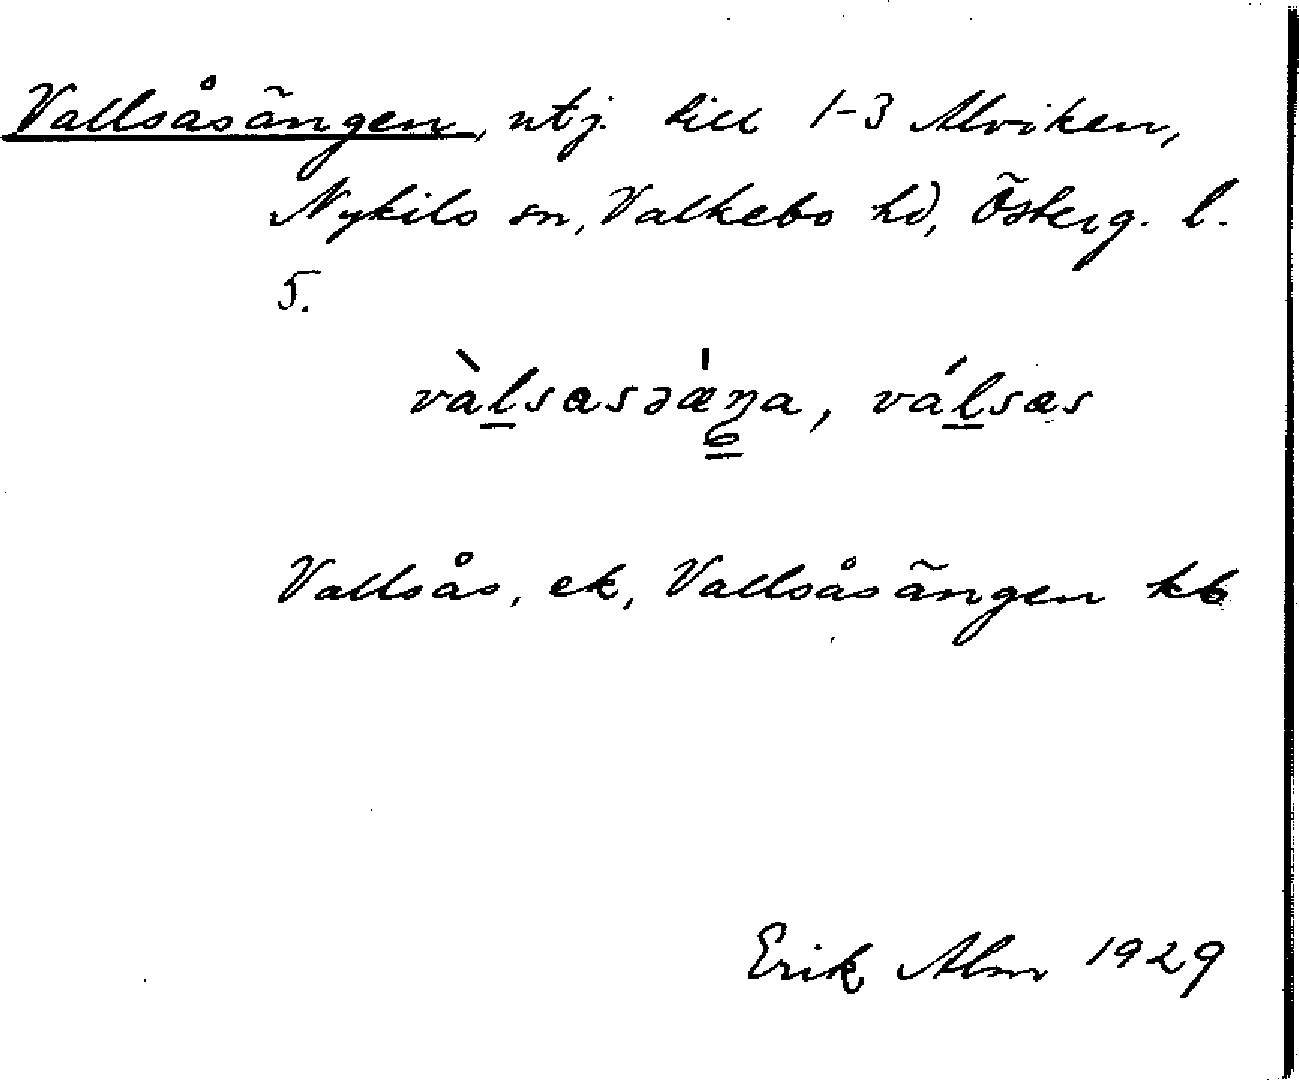 Vallsåsängen, utj. till 1-3 Alviken,
Nykils sn, Valkebo hd, Österg. l.
5.
vàlsasəæŋa, válsas
Vallsås, ek, Vallsåsängen kb
Erik Alm 1929